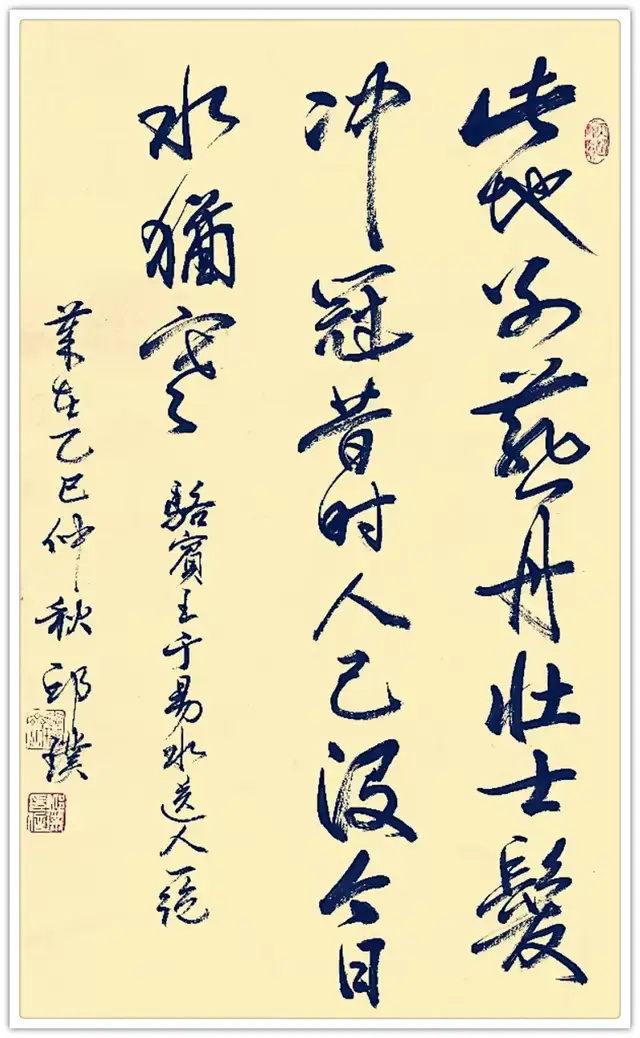 此地别燕丹壮士髮
冲冠昔时人已没今日
水猶寒
駱賓王于易水送人一绝
歲在乙巳仲秋邱璞